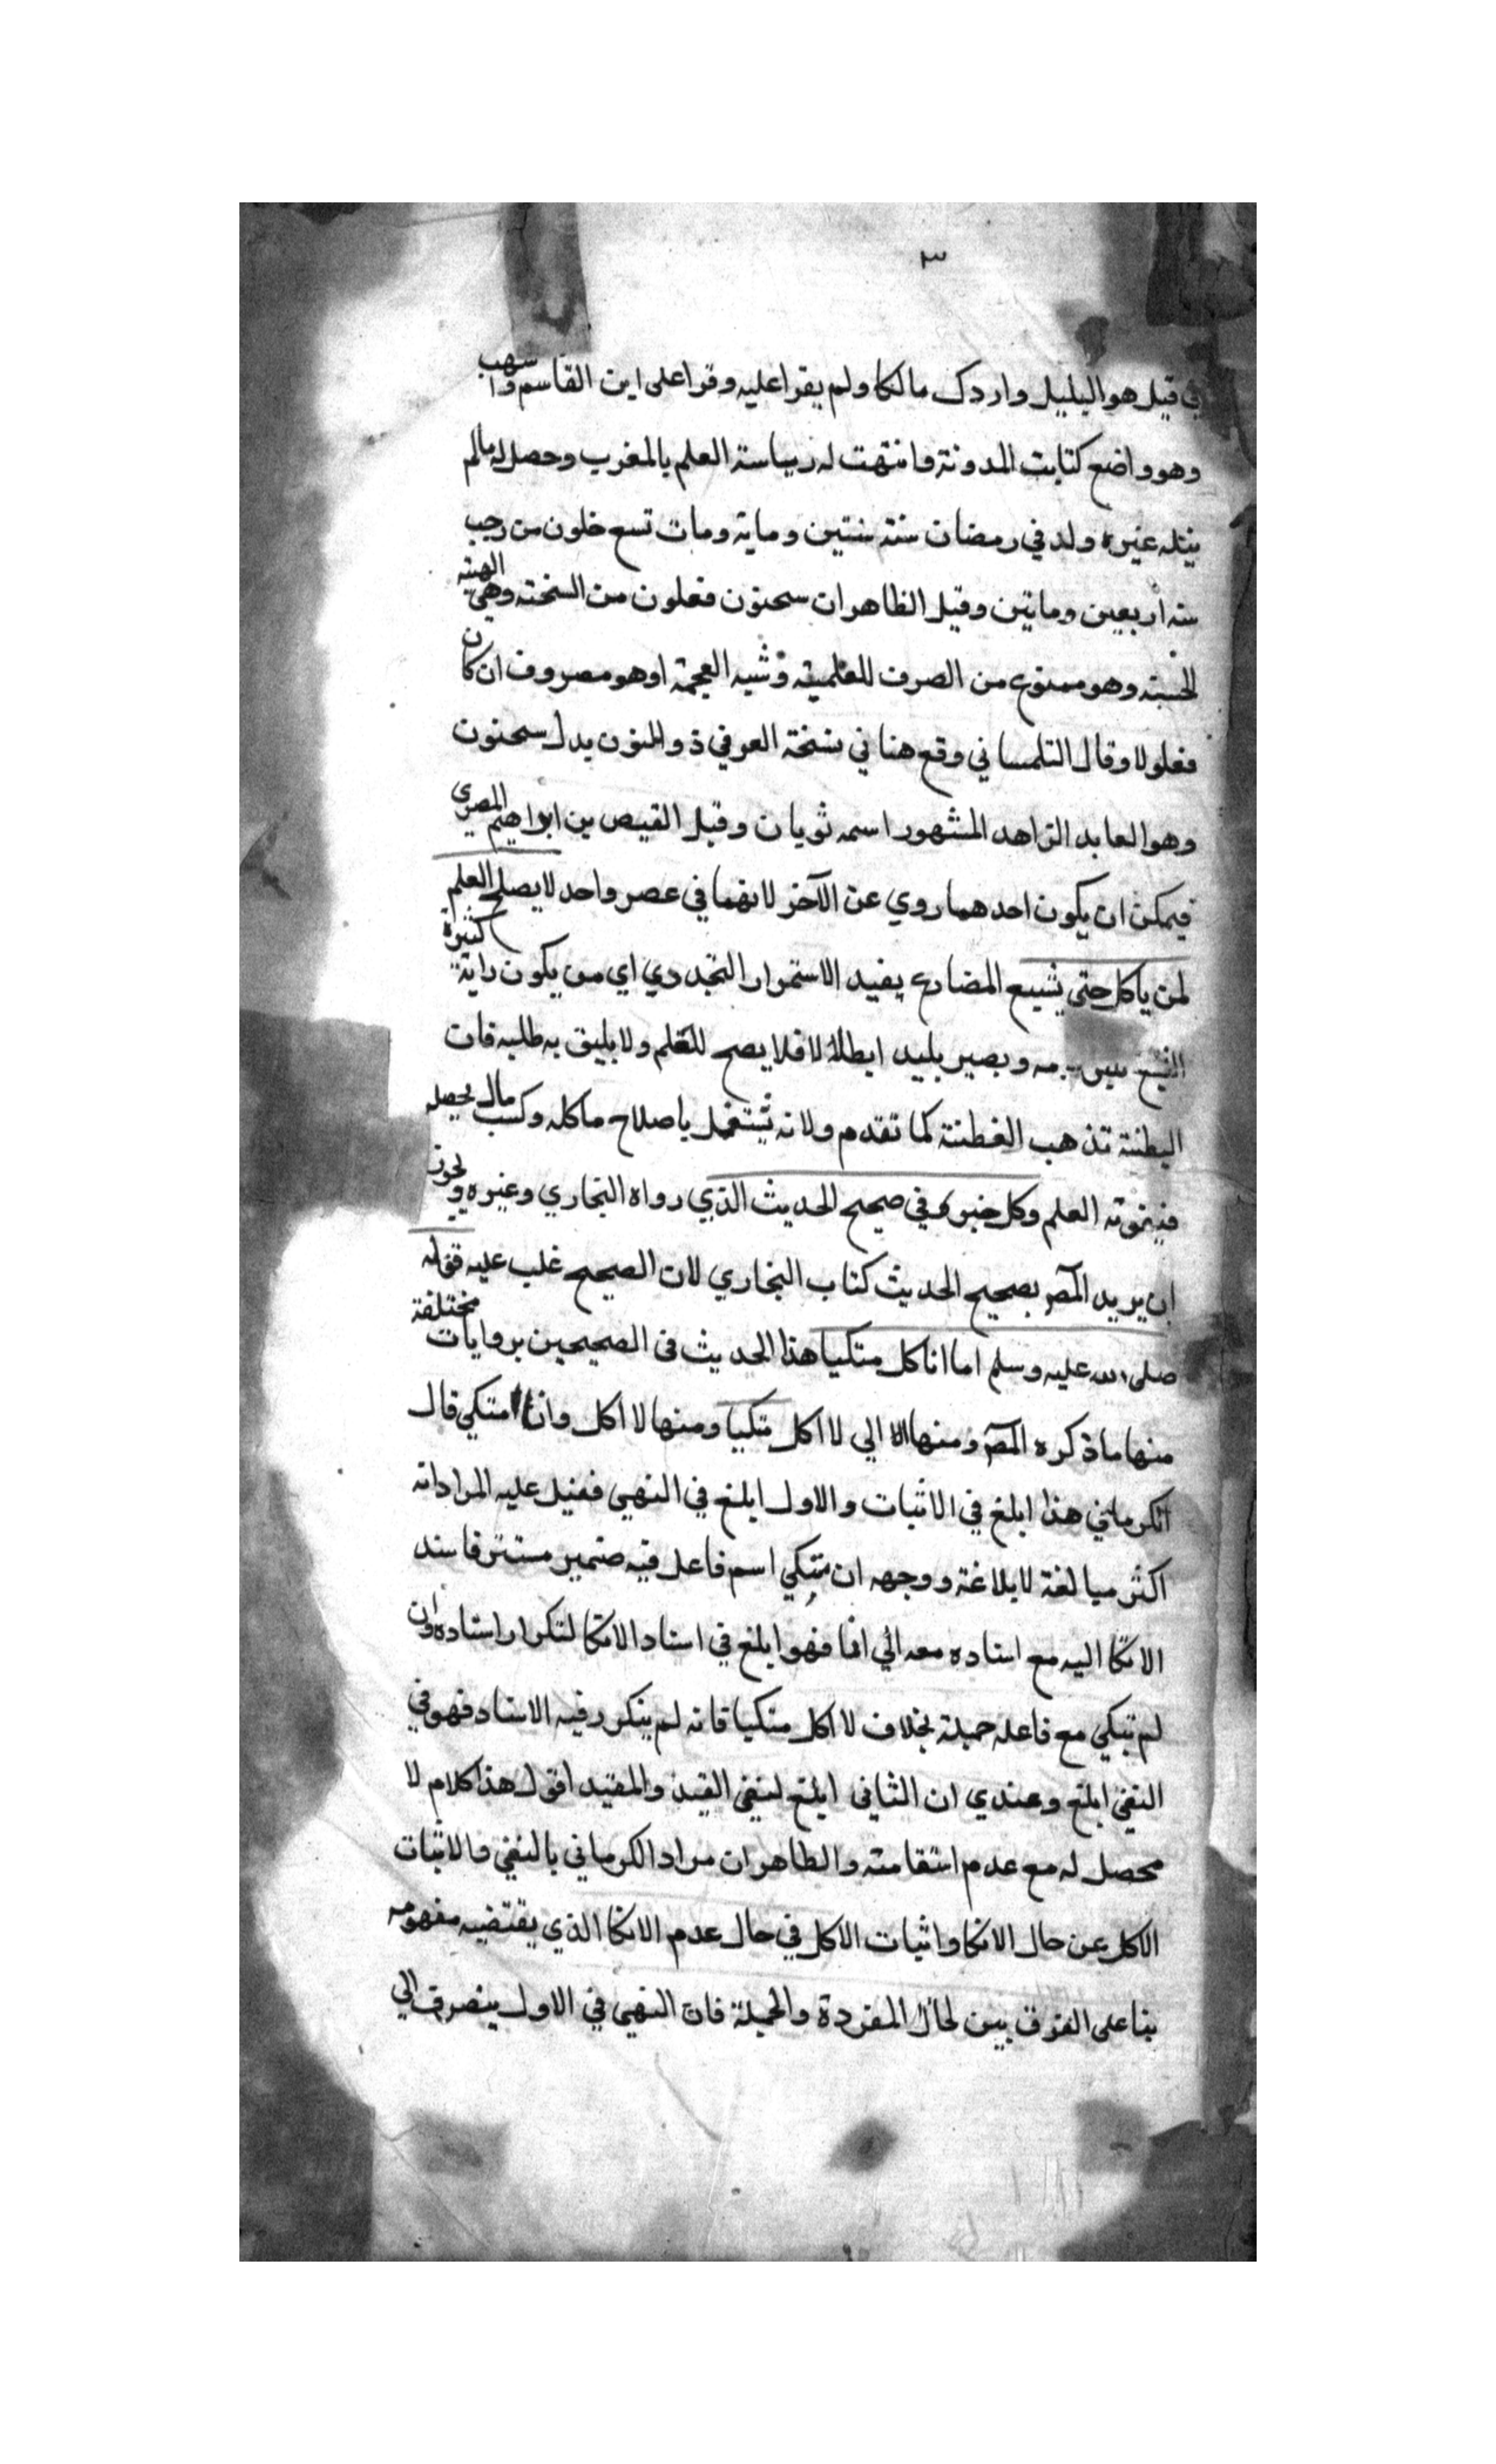 ٣
في قيل هو البليل واردك مالكا ولم يقرا عليه وقرا على ابن القاسم واشهب
وهو واضع كتابت المدونة وانتهت له رياسة العلم بالمغرب وحصل له مالم
ينله غيره ولد في رمضان سنة سنتين وماية ومات تسع خلون من رجب
سنة اربعين وماتين وقيل الظاهر ان سحنون فعلون من السحنة وهي الهيئة
الحسنة وهو ممنوع من الصرف للعلمية وشبه العجمة او هو مصروف ان كان
فعلولا وقال التلمساني وقع هنا في نسخة العرفي ذوالنون بدل سحنون
وهو العابد الزاهد المشهور اسمه ثوبان وقيل الفيض بن ابراهيم المصري
فيمكن ان يكون احدهما روي عن الآخر لانهما في عصر واحد لا يصلح العلم
لمن ياكل حتى يشبع المضارع يفيد الاستمرار التجددي اي من يكون راية كثيرة
الشبع وبصير بليد ابطالا فلا يصح للتعلم ولا يليق به طلبه فان
البطنة تذهب الفطنة كما تقدم ولانه يشتغل باصلاح ماكله وكسب مال يحصله
فيفوته العلم وكل خبره في صحيح الحديث الذي رواه البخاري وغيره ويجوز
ان يريد المص بصحيح الحديث كتاب البخاري لان الصحيح غلب عليه قوله
صلى الله عليه وسلم اما انا كل متكيا هذا الحديث في الصحيحين بروايات مختلفة
منها ماذكره المص ومنها الي لا اكل متكيا ومنها لا اكل وانا متكي قال
الكرماني هذا ابلغ في الاثبات والاول ابلغ في النهي فقيل عليه المراد انه
اكثر مبالغة لابلاغة ووجهه ان متكي اسم فاعل فيه ضمير مستتر فاسند
الاتكا اليه مع اسناده معه الي انا فهو ابلغ في اسناد الاتكا لتكرار اسناده وان
لم تبكي مع فاعله جملة بخلاف لا اكل متكيا فانه لم يتكرر فيه الاسناد فهو في
النفي ابلغ وعندي ان الثاني ابلغ لنفي القيد والمقيد اقول هذا كلام لا
محصل له مع عدم استقامته والظاهر ان مراد الكرماني بالنفي والاثبات
الاكل عن حال الاتكا واثبات الاكل في حال عدم الاتكا الذي يقتضيه مفهومه
بنا على الفرق بين لحال المفردة والجملة فان النهي في الاول ينصرف الي